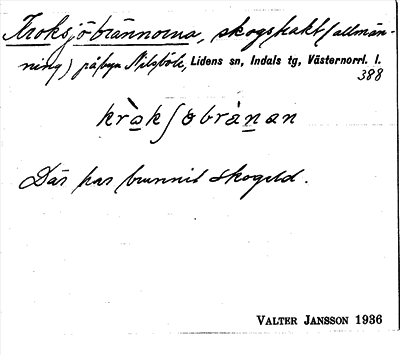 Kroksjöbrännorna, skogstrakt (allmän-
ning) på byn Nilsböle, Lidens sn, Indals tg, Västernorrl. l.
388
kràkʃobrànan
Där har brunnit skogeld.
VALTER JANSSON 1936